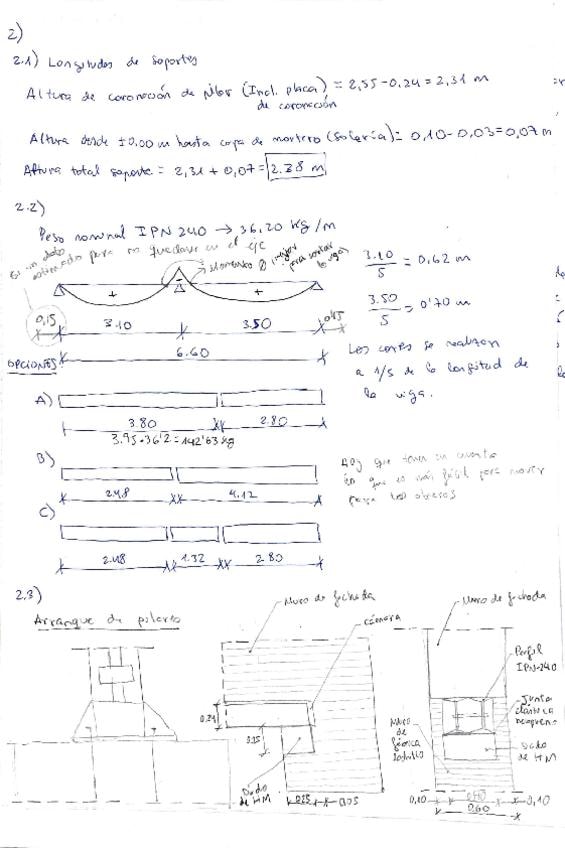 2)
2.1) Longitudes de soportes
Altura de coronación de pilar (Incl. placa de coronación) = 2,55 - 0,24 = 2,31 m
Altura desde ±0,00 m hasta capa de mortero (solería) = 0,10 - 0,03 = 0,07 m
Altura total soporte = 2,31 + 0,07 = 2.38 m
2.2)
Peso nominal IPN 240 → 36,20 kg/m
Es un dato estimado para no quedarse en el eje
Momento 0 (mejor para cortar la viga)
+ - +
0,15 3.10 3.50 0'15
6.60
3.10/5 = 0,62 m
3.50/5 = 0'70 m
Los cortes se realizan
a 1/5 de la longitud de
la viga.
OPCIONES:
A)
3.80 2.80
3.95·36'2 = 142'63 kg
B)
2.48 4.12
Hay que tener en cuenta
lo que es más fácil para mover
para los obreros
C)
2.48 1.32 2.80
2.3)
Arranque de pilares
Muro de fachada
cámara
0.24
0.25
Dado
de HM
0.25 0.05
Muro de fachada
Perfil
IPN-240
Junta
elástica
neopreno
Muro
de
fábrica
ladrillo
Dado
de HM
0,10 0.40 0,10
0.60